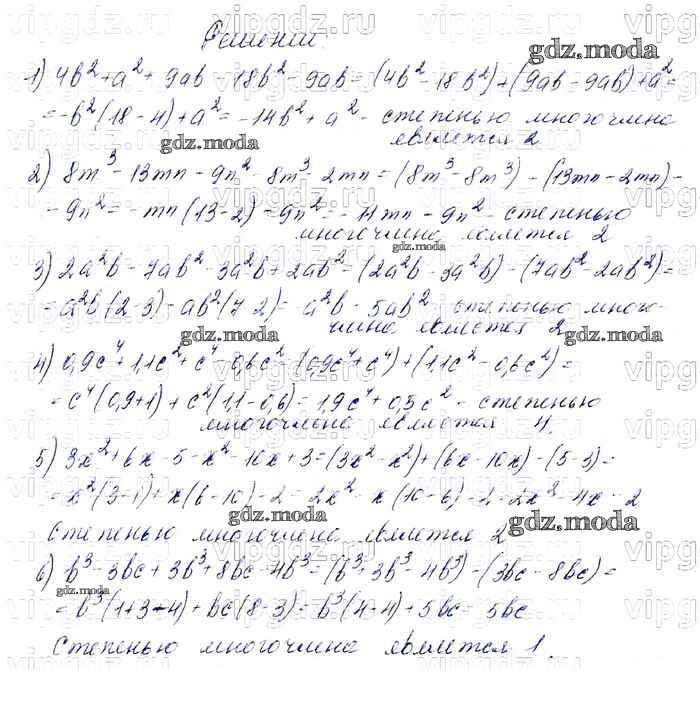 Решение
1) 4b²+a²+9ab-18b²-9ab=(4b²-18b²)+(9ab-9ab)+a²=
=-b²(18-4)+a²=-14b²+a² - степенью многочлена
является 2
2) 8m³-13mn-9n²-8m³-2mn=(8m³-8m³)-(13mn-2mn)-
-9n²=-mn(13-2)=9n²=-11mn-9n² - степенью
многочлена является 2
3) 2a²b-7ab²-3a²b+2ab²=(2a²b-3a²b)-(7ab²-2ab²)=
=a²b(2-3)-ab²(7-2)=-a²b-5ab² - степенью много-
члена является 2
4) 0,9c⁴+1,1c²+c⁴-0,6c²=(0,9c⁴+c⁴)+(1,1c²-0,6c²)=
=c⁴(0,9+1)+c²(1,1-0,6)=1,9c⁴+0,5c² - степенью
многочлена является 4.
5) 3x²+6x-5-x²-10x+3=(3x²-x²)+(6x-10x)-(5-3)=
=x²(3-1)+x(6-10)-2=2x²-x(10-6)-2=2x²-4x-2
Степенью многочлена является 2
6) b³-3bc+3b³+8bc-4b³=(b³+3b³-4b³)-(3bc-8bc)=
=b³(1+3-4)+bc(8-3)=b³(4-4)+5bc=5bc
Степенью многочлена является 1.
gdz.moda
gdz.moda
gdz.moda
gdz.moda
gdz.moda
gdz.moda
gdz.moda
gdz.moda
vipgdz.ru